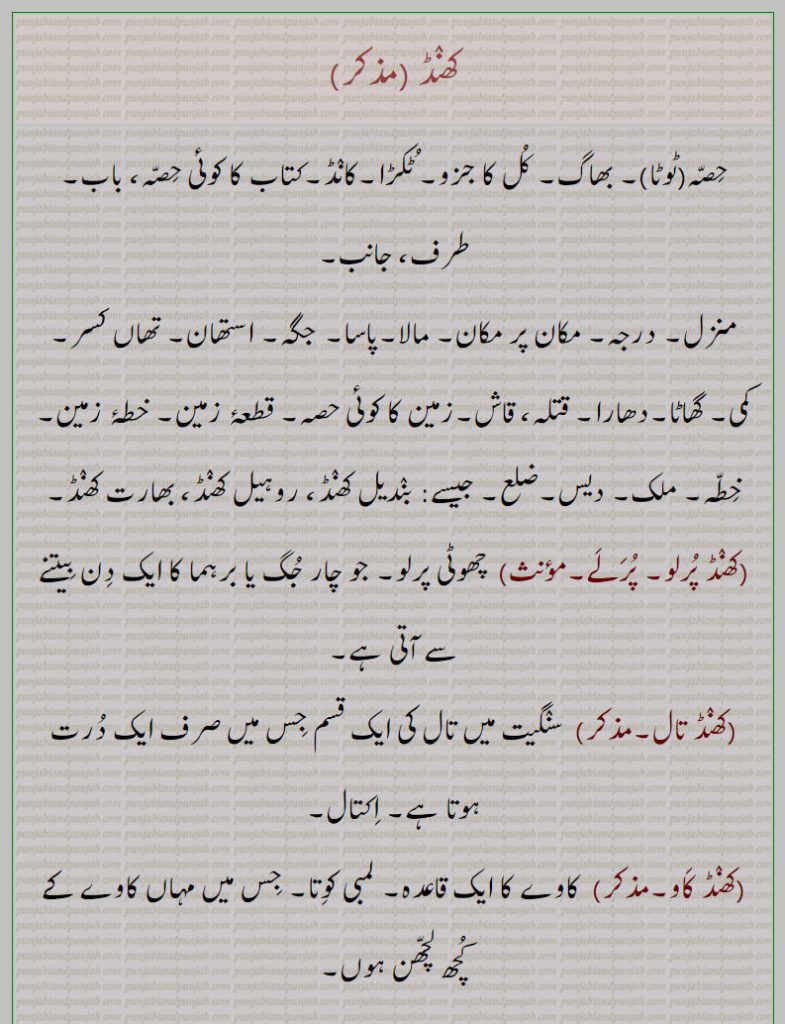 کھنْڈ (مذکر)
حِصّہ(ٹوٹا)۔ بھاگ۔ کُل کا جزو۔ ٹُکڑا۔کانْڈ۔کتاب کا کوئی حِصّہ، باب۔
طرف، جانب۔
منزل۔ درجہ۔ مکان پر مکان۔ مالا۔پاسا۔ جگہ۔ استھان۔ تھاں کسر۔
کمی۔ گھاٹا۔دھارا۔ قتلہ، قاش۔زمین کا کوئی حصہ۔ قطعۂ زمین۔ خطۂ زمین۔
خِطّہ۔ ملک۔ دیس۔ضلع۔ جیسے: بنْدیل کھنْڈ، روہیل کھنْڈ، بھارت کھنْڈ۔
(کھنْڈ پُرلو۔ پُرَلَے۔مؤنث) چھوٹی پرلو۔ جو چار جُگ یا برہما کا ایک دِن بِیتنے
سے آتی ہے۔
(کھنْڈ تال۔مذکر) سنْگیت میں تال کی ایک قسم جِس میں صرف ایک دُرت
ہوتا ہے۔ اِکتال۔
(کھنْڈ کاو۔مذکر) کاوے کا ایک قاعدہ۔ لمبی کوِتا۔ جِس میں مہاں کاوے کے
کُچھ لچّھن ہوں۔